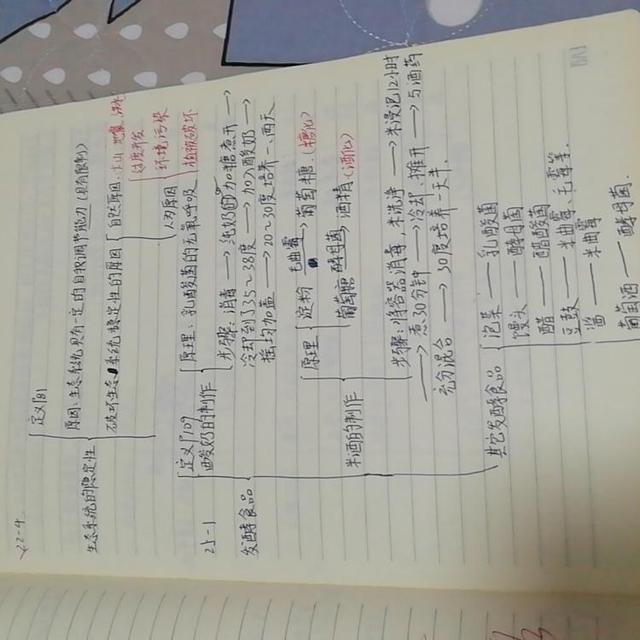 22-4
生态系统的稳定性
定义 P81
原因:生态系统具有一定的自我调节能力(具有限制)
破坏生态系统稳定性的原因
自然原因:火山 地震
人为原因
过度开发
环境污染
植被破坏
25-1
发酵食品
定义 P109
酸奶的制作
原理:乳酸菌的无氧呼吸
步骤:消毒→纯奶加糖煮开→
冷却到了35~38度→加入酸奶→
摇均加盖→20~30度培养一两天
米酒的制作
原理
淀粉 毛曲霉→葡萄糖(糖化)
葡萄糖 酵母菌→酒精(酒化)
步骤:将容器消毒 米洗净→米浸泡12小时
→煮30分钟→冷却、摊开→与酒药
充分混合→30度培养一天半.
其它发酵食品
泡菜——乳酸菌
馒头——酵母菌
醋——醋酸菌
豆豉——米曲霉、毛霉等.
酱——米曲霉
葡萄酒——酵母菌.